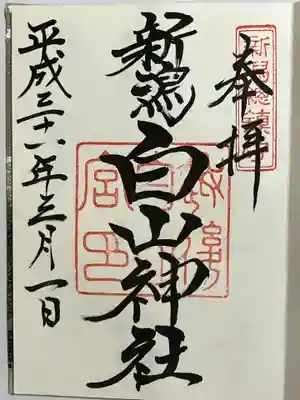 奉拝
新潟總鎮
新潟白山神社
平成二十八年三月一日